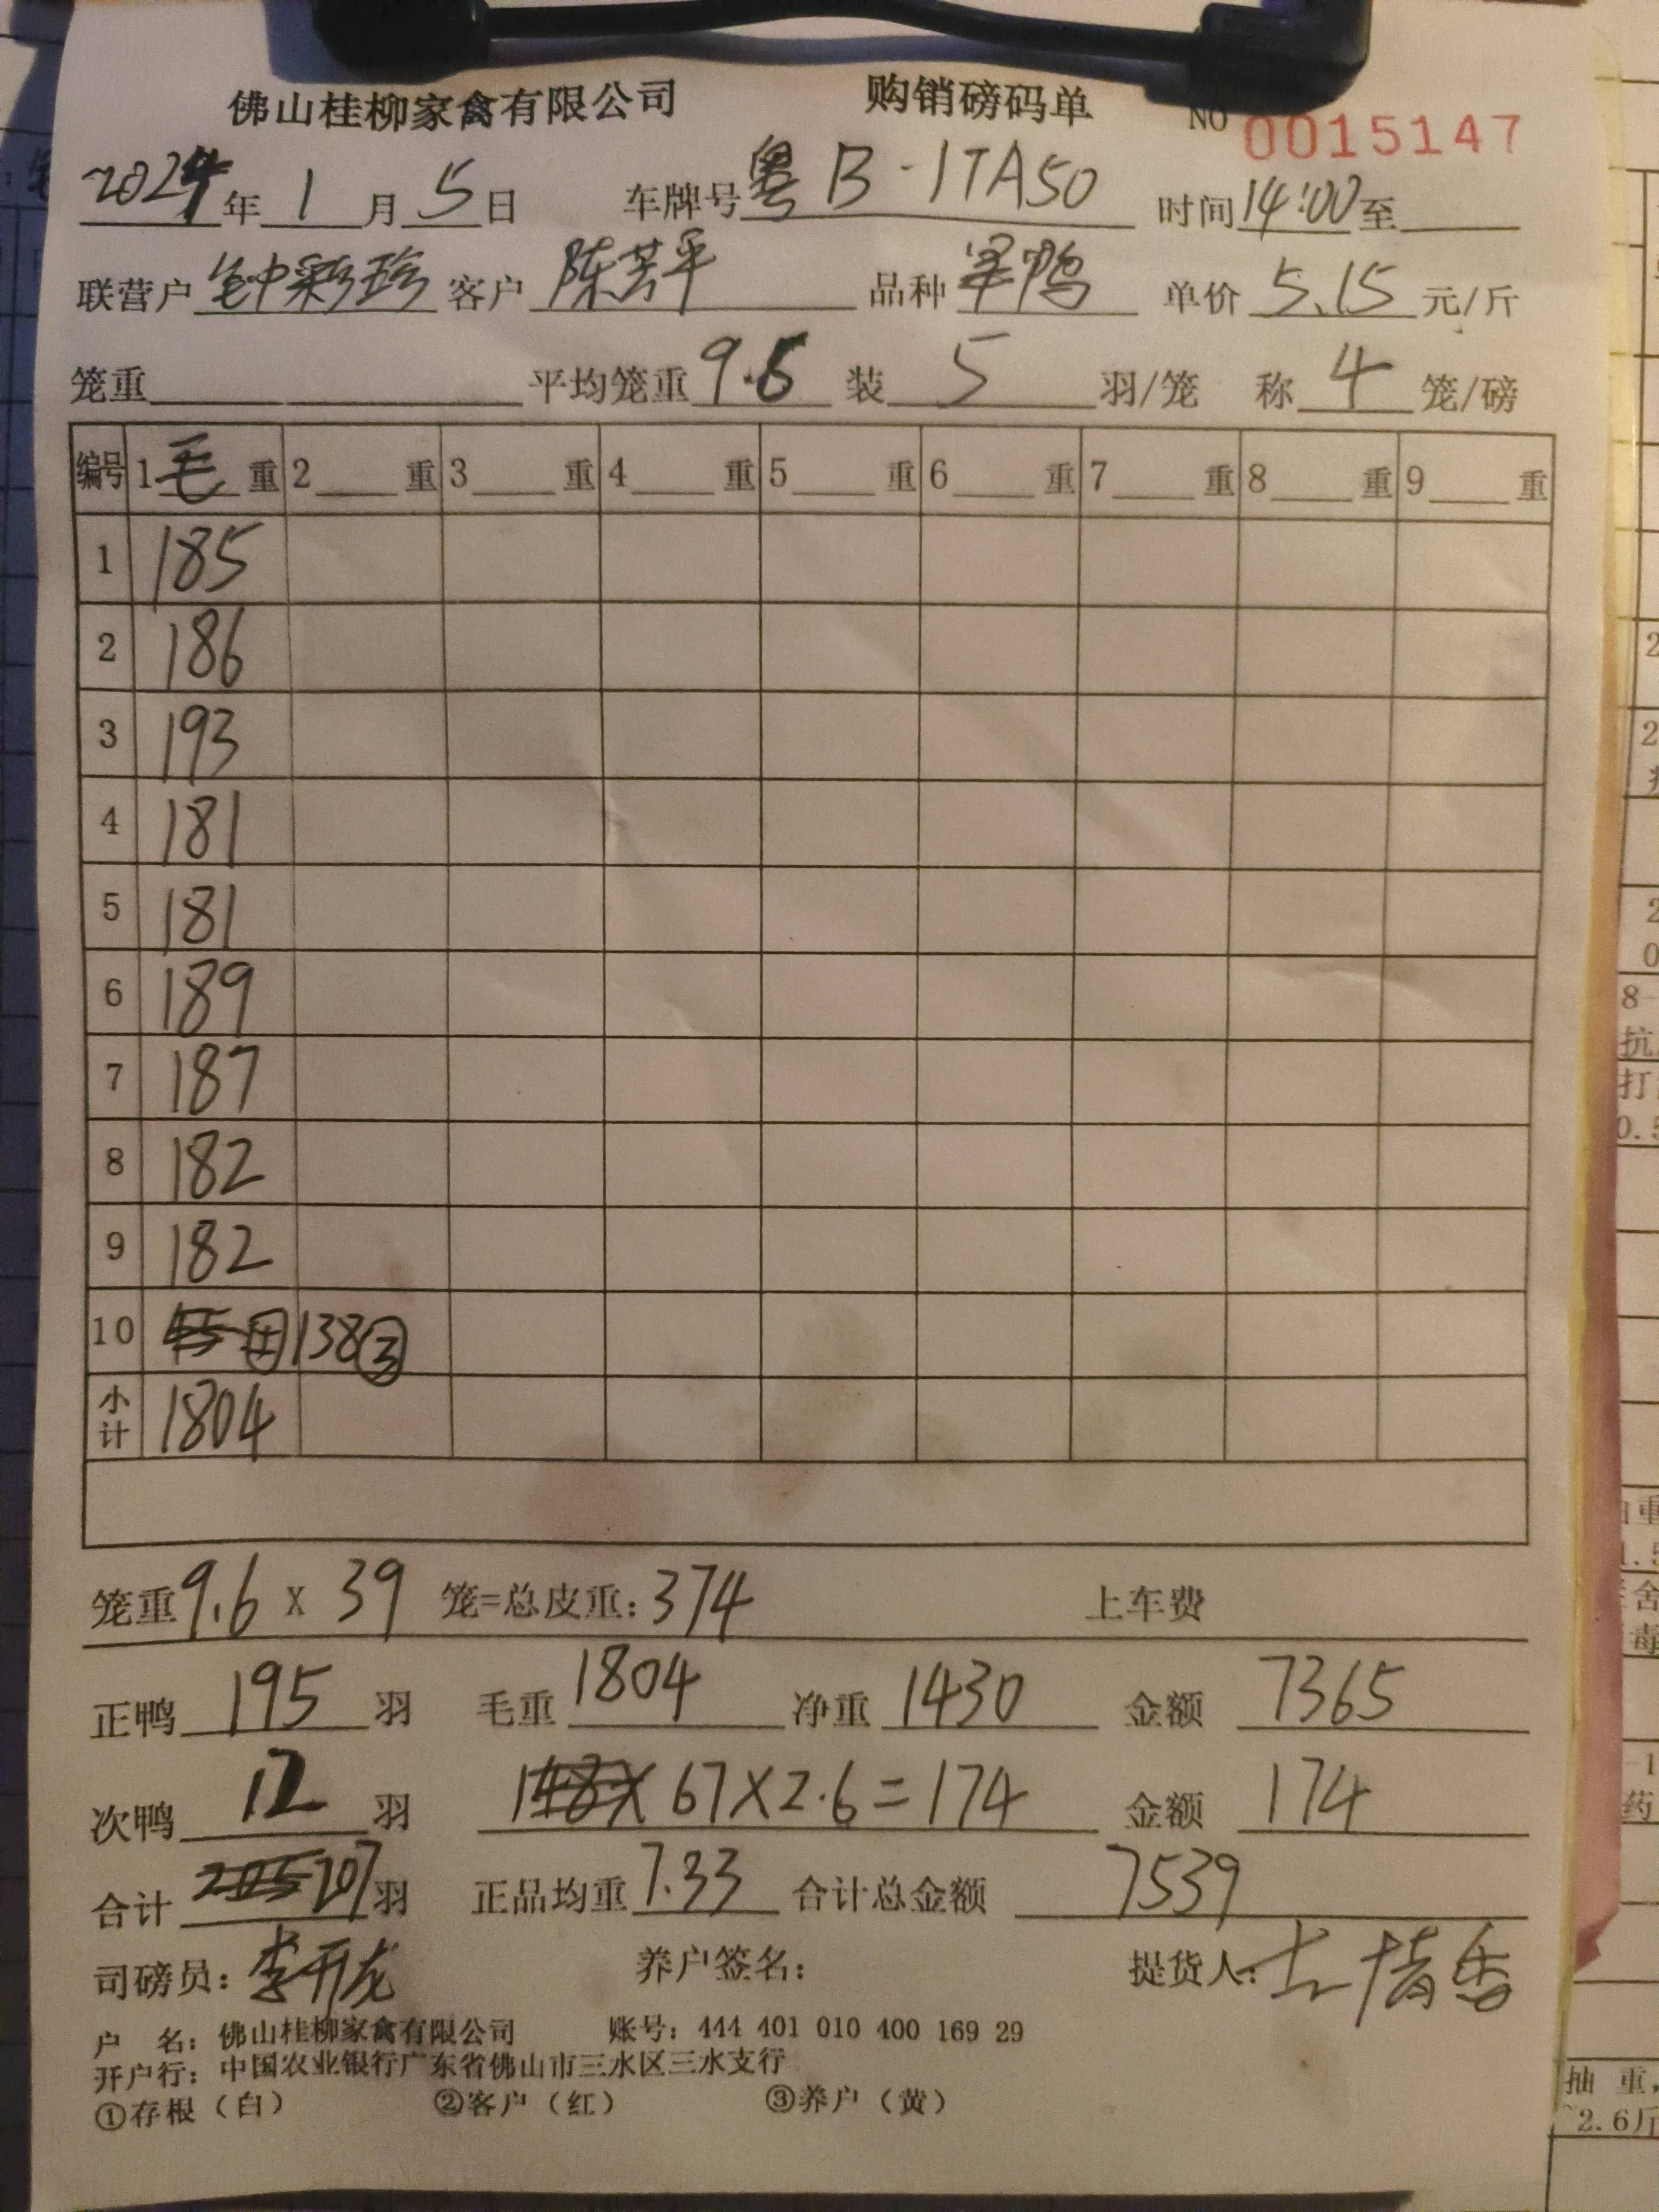 佛山桂柳家禽有限公司 购销磅码单 NO 0015147
2024年1月5日 车牌号粤B-1TA50 时间14:00至
联营户钟彩珍 客户陈芳平 品种 鸭 单价5.15元/斤
笼重 平均笼重9.6 装5羽/笼 称4笼/磅
编号 1毛重 2 重 3 重 4 重 5 重 6 重 7 重 8 重 9 重
1 185
2 186
3 193
4 181
5 181
6 189
7 187
8 182
9 182
10 138③
小计 1804
笼重9.6 X 39 笼=总皮重:374 上车费
正鸭195羽 毛重1804 净重1430 金额7365
次鸭12羽 67X2.6=174 金额174
合计207羽 正品均重7.33 合计总金额7539
司磅员:李开龙 养户签名: 提货人:
户 名:佛山桂柳家禽有限公司 账号:444 401 010 400 169 29
开户行:中国农业银行广东省佛山市三水区三水支行
①存根(白) ②客户(红) ③养户(黄)
抽 重,
2.6斤